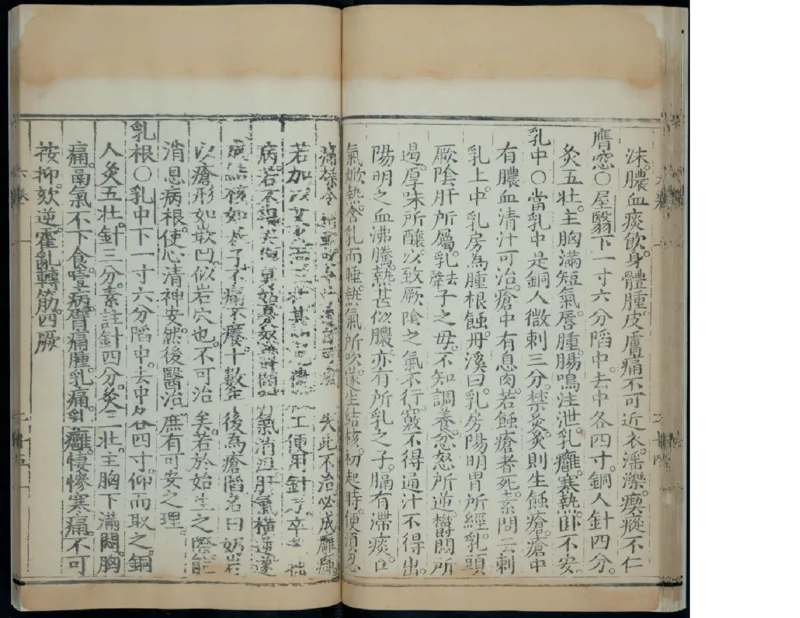 沫膿血痰飲身體腫皮膚痛不可近衣淫濼瘈瘲不仁
膺窓〇屋翳下一寸六分陷中去中各四寸銅人針四分
灸五壯主胸滿短氣唇腫腸鳴注泄乳癰寒熱臥不安
乳中〇當乳中是銅人微刺三分禁灸灸則生蝕瘡瘡中
有膿血清汁可治瘡中有息肉若蝕瘡者死素問云刺
乳上中乳房為腫根蝕丹溪曰乳房陽明胃所經乳頭
厥陰肝所屬乳子之母不知調養忿怒所逆鬱悶所
遏厚味所釀以致厥陰之氣不行竅不得通汁不得出
陽明之血沸騰熱甚化膿亦有所乳之子膈有滯痰口
氣焮熱含乳而睡熱氣所吹遂生結核初起時便須忍
痛 失此不治必成癰癤
若加 工便用針 卒
病若不得 氣消沮肝氣橫逆遂
結核如棊子不痛不癢十數年後為瘡陷名曰奶岩
以瘡形如嵌凹似岩穴也不可治矣若於始生之際能
消息病根使心清神安然後醫治庶有可安之理
乳根〇乳中下一寸六分陷中去中各四寸仰而取之銅
人灸五壯針三分素註針四分灸三壯主胸下滿悶胸
痛膈氣不下食噎病臂痛腫乳痛乳癰悽慘寒痛不可
按抑欬逆霍亂轉筋四厥